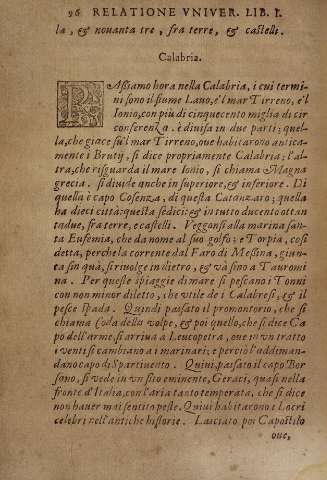 96 RELATIONE VNIVER. LIB. I.
la, & nouanta tre, fra terre, & castelli.
Calabria.
PAssiamo hora nella Calabria, i cui termi-
ni sono il fiume Lauo, e'l mar Tirreno, e'l
Ionio, con più di cinquecento miglia di cir
conferenza. è diuisa in due parti; quel-
la, che giace sù'l mar Tirreno, oue habitarono antica-
mente i Brutij, si dice propriamente Calabria; l'al-
tra, che risguarda il mare Ionio, si chiama Magna
grecia. si diuide anche in superiore, & inferiore. Di
quella è capo Cosenza, di questa Catanzaro; quella
ha dieci città; questa sedici; & in tutto ducento ottan
tadue, fra terre, e castelli. Veggonsi alla marina san-
ta Eufemia, che da nome al suo golfo; e Torpia, così
detta, perche la corrente dal Faro di Messina, giun-
ta sin quà, si riuolge in dietro, & và sino a Tauromi
na. Per queste spiaggie di mare si pescano i Tonni
con non minor diletto, che vtile de i Calabresi, & il
pesce spada. Quindi passato il promontorio, che si
chiama Coda della volpe, & poi quello, che si dice Ca
po dell'arme si arriua a Leucopetra, oue in vn tratto
i venti si cambiano a i marinari; e perciò l'addiman-
dano capo di Spartiuento. Quiui, passato il capo Bor
sano, si vede in vn sito eminente, Geraci, quasi nella
fronte d'Italia, con l'aria tanto temperata, che si dice
non hauer mai sentito peste. Quiui habitarono e Locri
celebri nell'antiche historie. Lasciato poi Capostilo
oue,